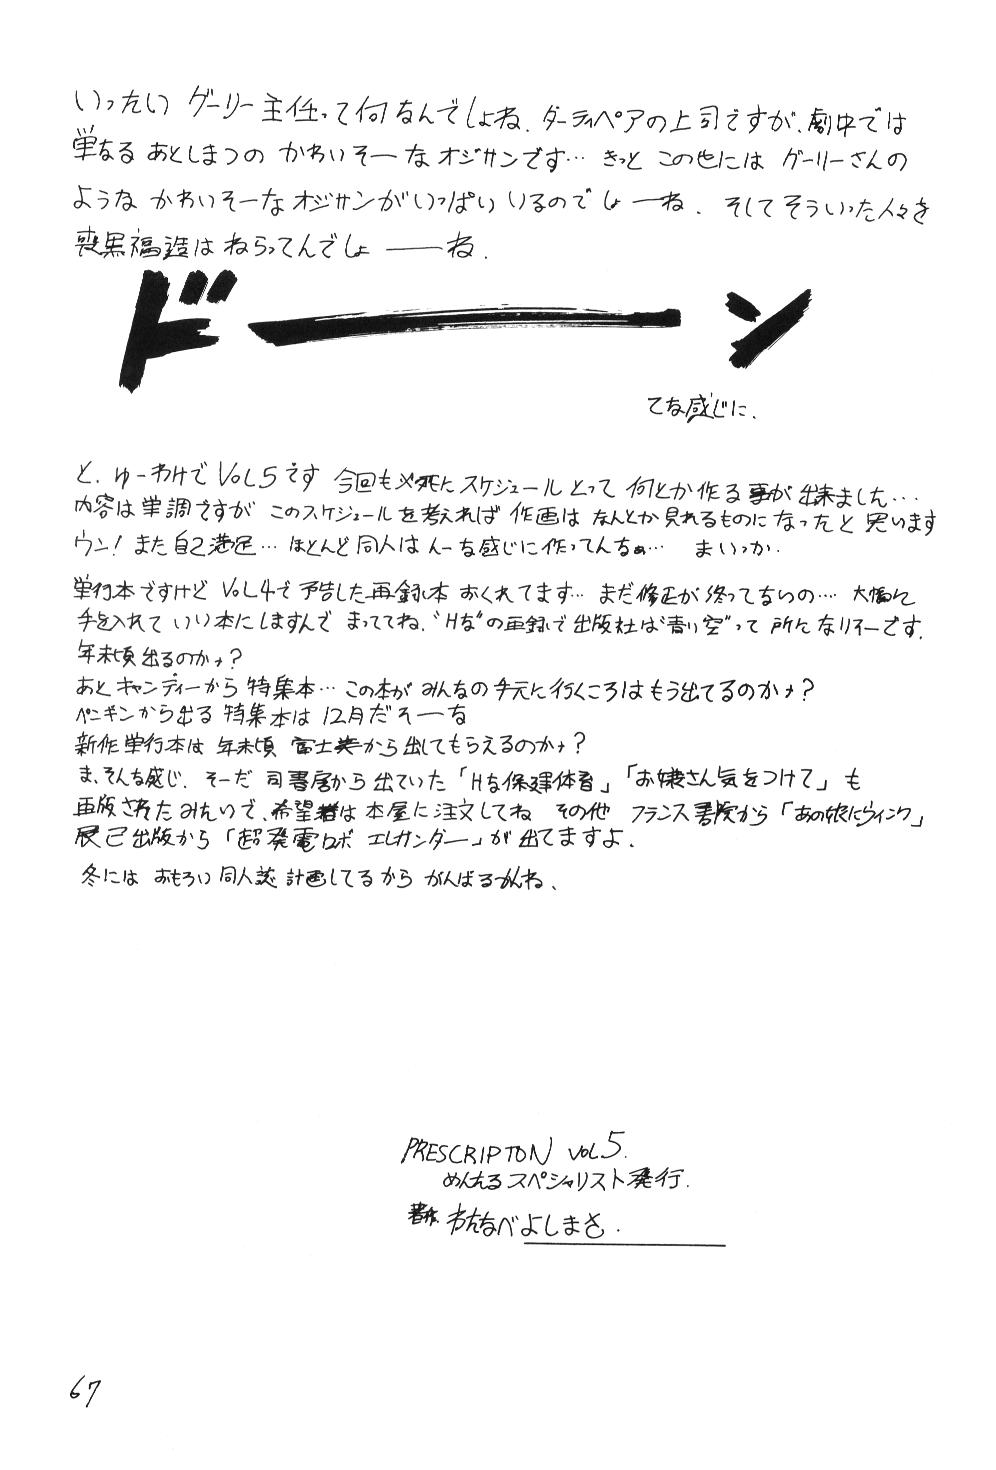 いったい ゲーリー主任って何なんでしょね、ダーティペアの上司ですが、劇中では
単なる あとしまつの かわいそーなオジサンです… きっと この世には ゲーリーさんの
ような かわいそーなオジサンがいっぱい いるのでしょーね. そしてそういった人々を
喪黒福造は ねらってんでしょ ──ね.
ドーーン
てな感じに.
と、ゆーわけで VOL5です 今回も必死にスケジュールとって 何とか作る事が出来ました…
内容は単調ですが このスケジュールを考えれば 作画は なんとか見れるものになったと思います
ウン! また自己満足… ほとんど同人は んーな感じに作ってんなぁ… まいっか.
単行本ですけど VOL4で予告した再録本 おくれてます… まだ修正が終ってないの… 大幅に
手を入れて いい本にしますんで まっててね. "Hな"の再録で出版社は"青い空"って 所になりそーです.
年末頃出るのかナ?
あと キャンディーから 特集本… この本が みんなの手元に行くころはもう出てるのかナ?
ペンギンから出る 特集本は 12月だそーな
新作単行本は 年末頃 富士美から出してもらえるのかナ?
ま、そんな感じ. そーだ 司書房から出ていた「Hな保健体育」「お嬢さん気をつけて」も
再版されたみたいで、希望者は本屋に注文してね その他 フランス書院から「あの娘にウィンク」
辰己出版から「超発電ロボ エレガンダー」が出てますよ.
冬には おもろい同人誌 計画してるから がんばるかんね、
PRESCRIPTON VOL5.
めんたるスペシャリスト発行.
著作. わたなべよしまさ.
67